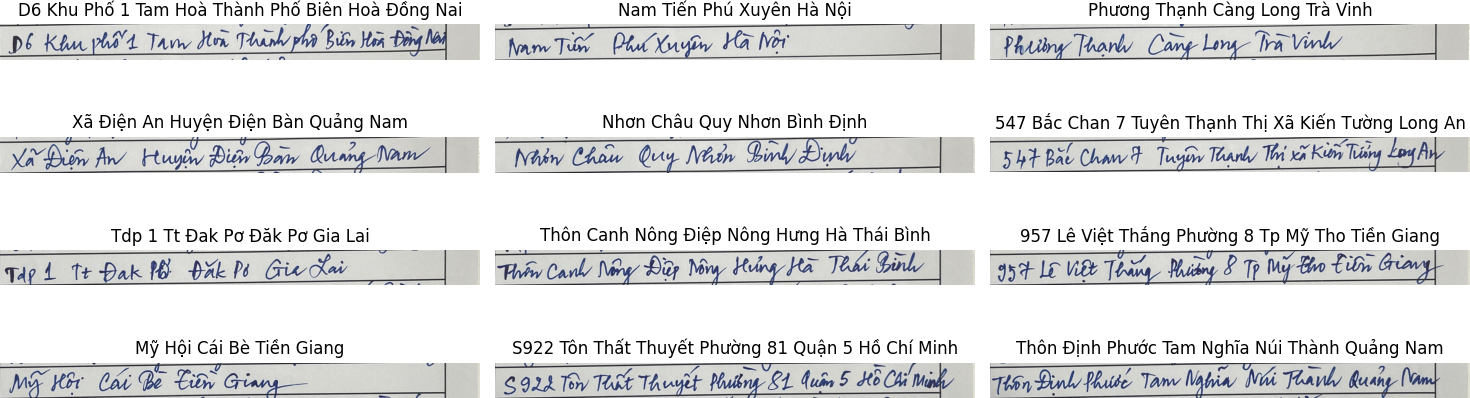 D6 Khu Phố 1 Tam Hoà Thành Phố Biên Hoà Đồng Nai
D6 Khu phố 1 Tam Hoà Thành phố Biên Hòa Đồng Nai
Nam Tiến Phú Xuyên Hà Nội
Nam Tiến Phú Xuyên Hà Nội
Phương Thạnh Càng Long Trà Vinh
Phương Thạnh Càng Long Trà Vinh
Xã Điện An Huyện Điện Bàn Quảng Nam
Xã Điện An Huyện Điện Bàn Quảng Nam
Nhơn Châu Quy Nhơn Bình Định
Nhơn Châu Quy Nhơn Bình Định
547 Bác Chan 7 Tuyên Thạnh Thị Xã Kiến Tường Long An
547 Bắc Chan 7 Tuyên Thạnh Thị xã Kiến Tường Long An
Tdp 1 Tt Đak Pơ Đăk Pơ Gia Lai
Tdp 1 Tt Đak Pơ Đăk Pơ Gia Lai
Thôn Canh Nông Điệp Nông Hưng Hà Thái Bình
Thôn Canh Nông Điệp Nông Hưng Hà Thái Bình
957 Lê Việt Thắng Phường 8 Tp Mỹ Tho Tiền Giang
957 Lê Việt Thắng Phường 8 Tp Mỹ Tho Tiền Giang
Mỹ Hội Cái Bè Tiền Giang
Mỹ Hội Cái Bè Tiền Giang
S922 Tôn Thất Thuyết Phường 81 Quận 5 Hồ Chí Minh
S922 Tôn Thất Thuyết Phường 81 Quận 5 Hồ Chí Minh
Thôn Định Phước Tam Nghĩa Núi Thành Quảng Nam
Thôn Định Phước Tam Nghĩa Núi Thành Quảng Nam